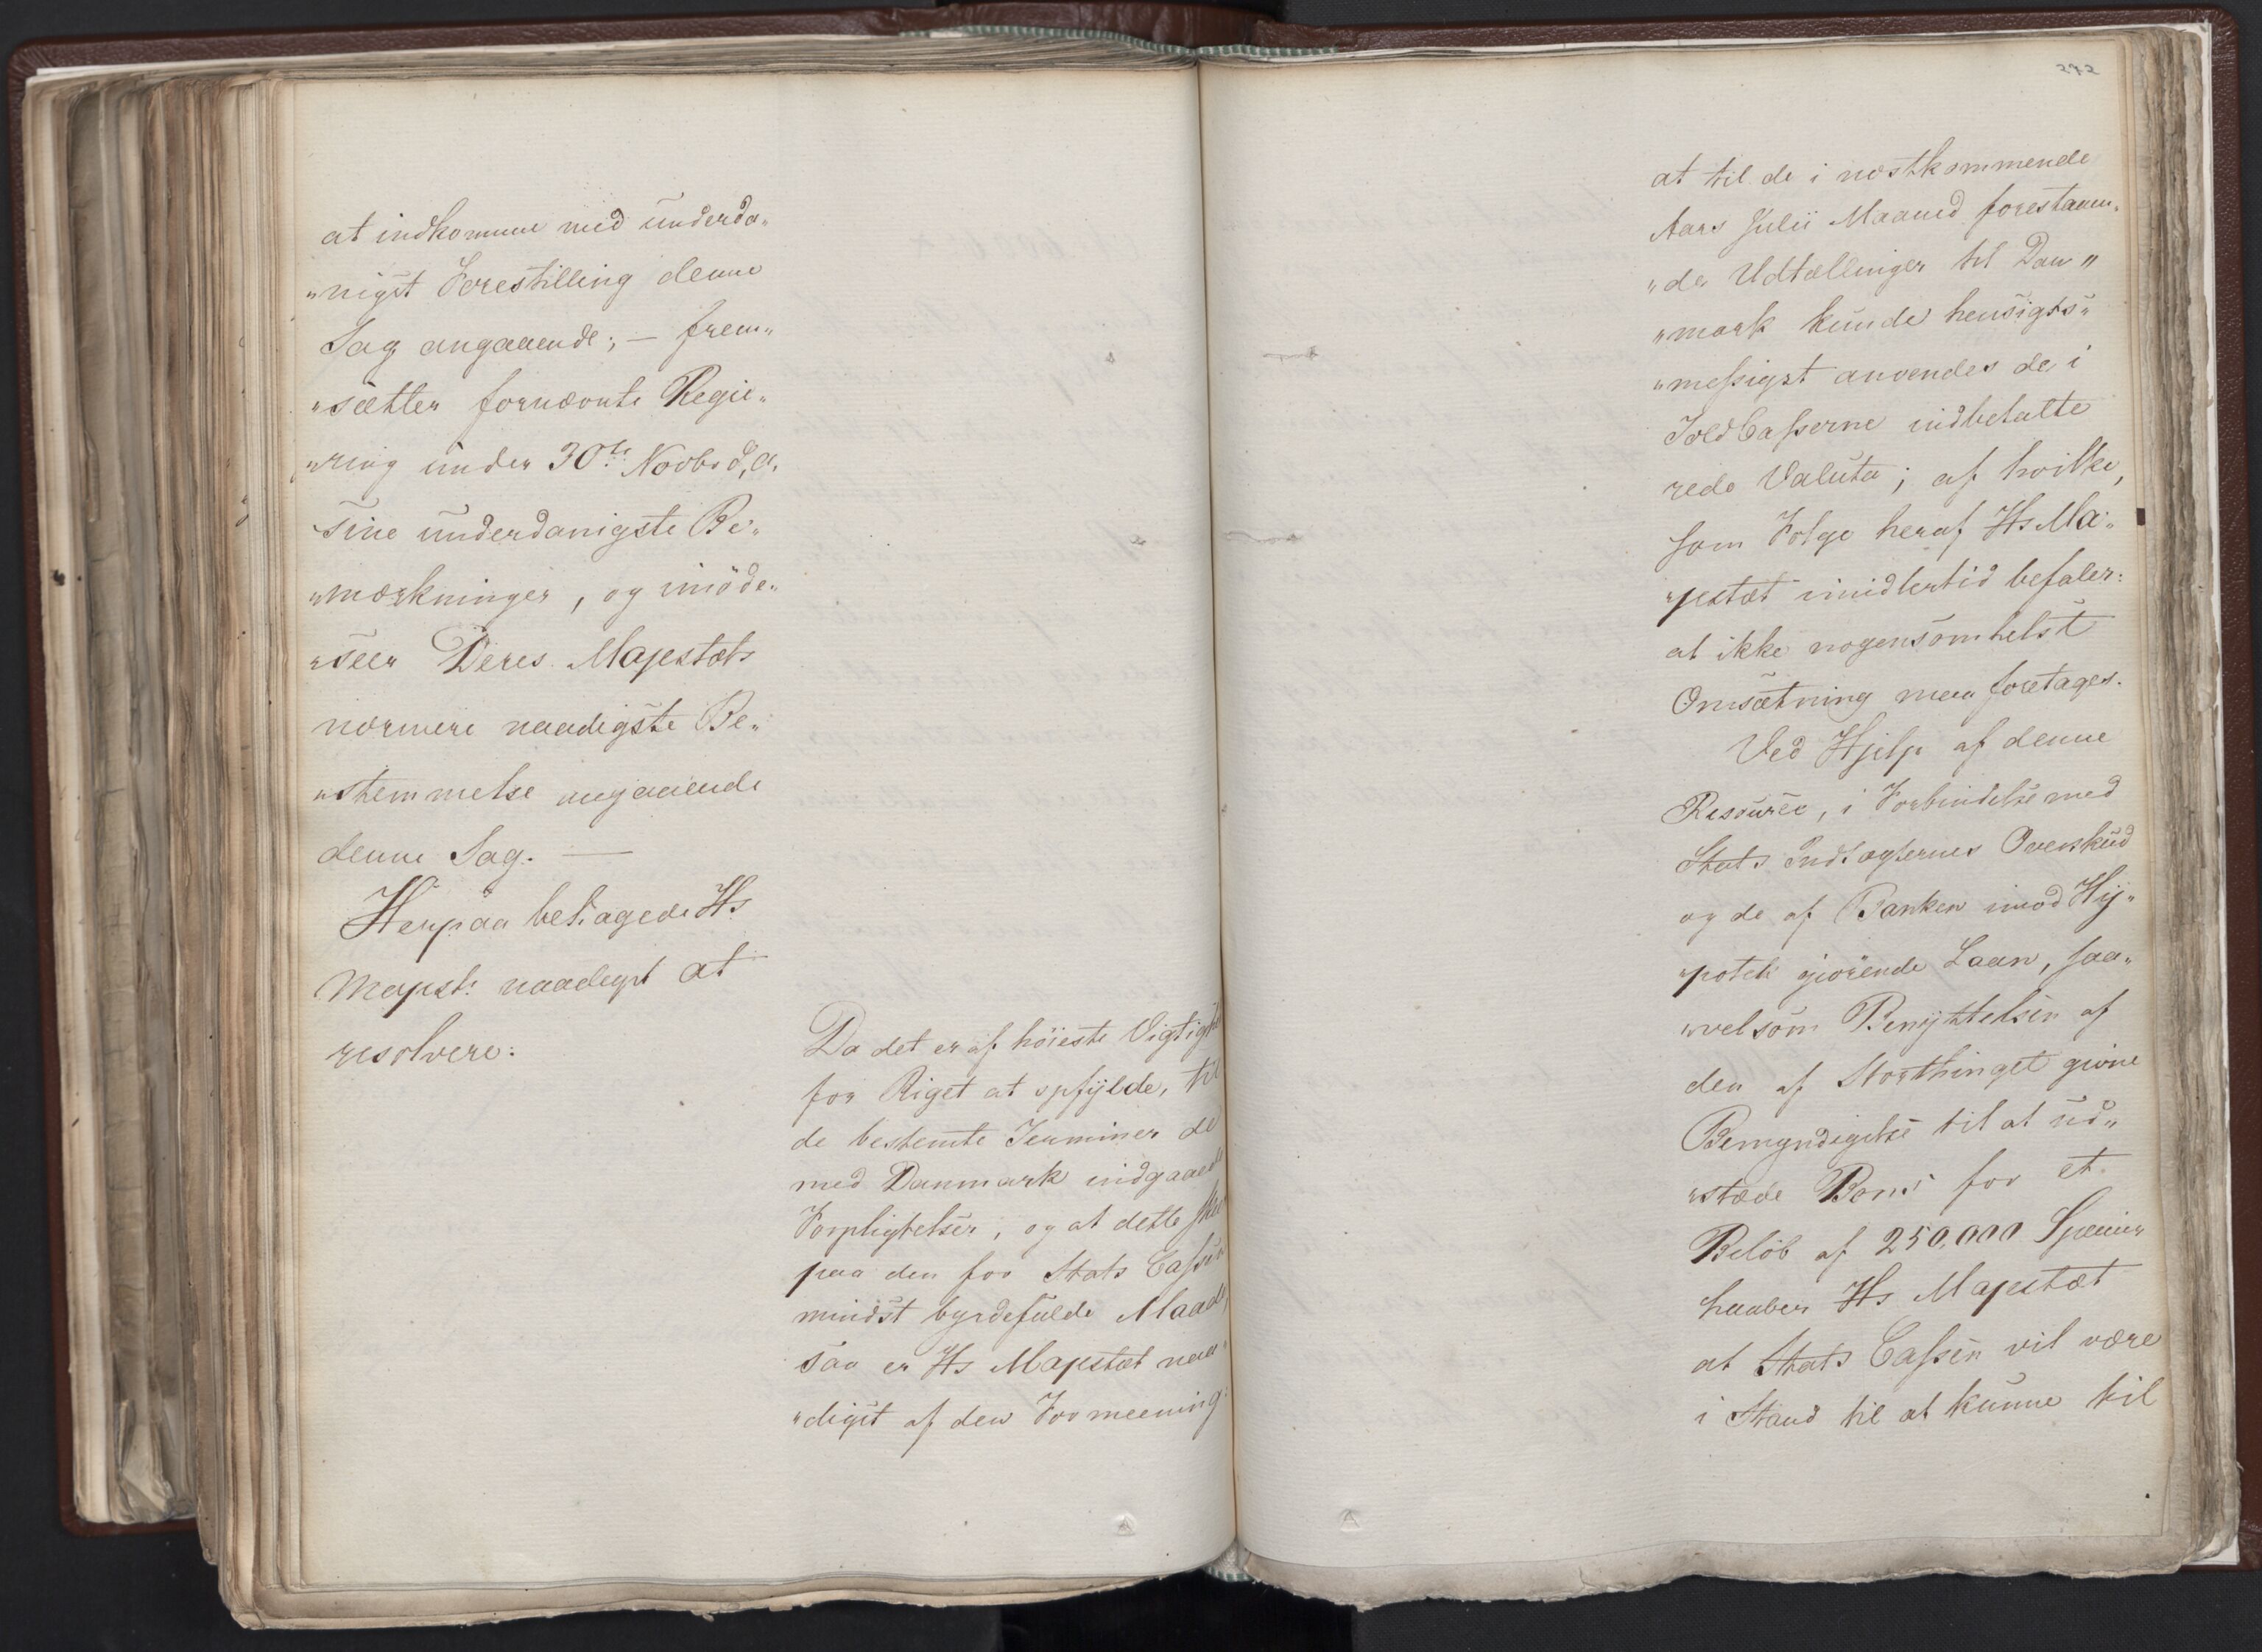 at indkomme med underda„
„nigst Forestilling denne
Sag angaaende; – frem„
„sætter fornævnte Regie„
„ring under 30te Novbr d. a.
sine underdanigste Be„
„mærkninger, og imöde„
„seer Deres Majestæts
nærmere naadigste Be„
„stemmelse angaaende
denne Sag. —
Herpaa behagede Hs
Majest: naadigst at
resolvere:
Da det er af höieste Vigtighed
for Riget at opfÿlde, til
de bestemte Terminer de
med Danmark indgaaede
Forpligtelser, og at dette skeer
paa den for Stats Cassen
mindst byrdefulde Maade,
saa er Hs Majestæt naa„
„digst af den Formeening:
272
at til de i næstkommende
Aars Julii Maaned forestaaen„
„de Udtællinger til Dan„
„mark kunde hensigts„
„messigst anvendes de i
Told Casserne indbetalte
rede Valuta; af hvilke,
som Fölge heraf Hs Ma„
„jestæt imidlertid befaler:
at ikke nogensomhelst
Omsætning maa foretages.
Ved Hjelp af denne
Ressurce, i Forbindelse med
Stats Indtægternes Overskud
og de af Banken imod Hÿ„
„pothek giörende Laan, saa„
„velsom Benÿttelsen af
den af Storthinget givne
Bemyndigelse til at ud„
„stæde Bons for et
Belöb af 250,000 Specier
haaber Hs Majestæt
at Stats Cassen vil være
i Stand til at kunne til